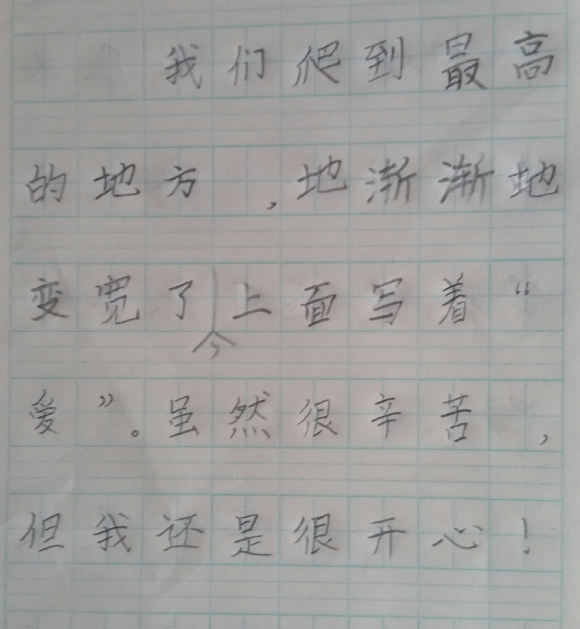 我们爬到最高
的地方，地渐渐地
变宽了，上面写着“
爱”。虽然很辛苦，
但我还是很开心！